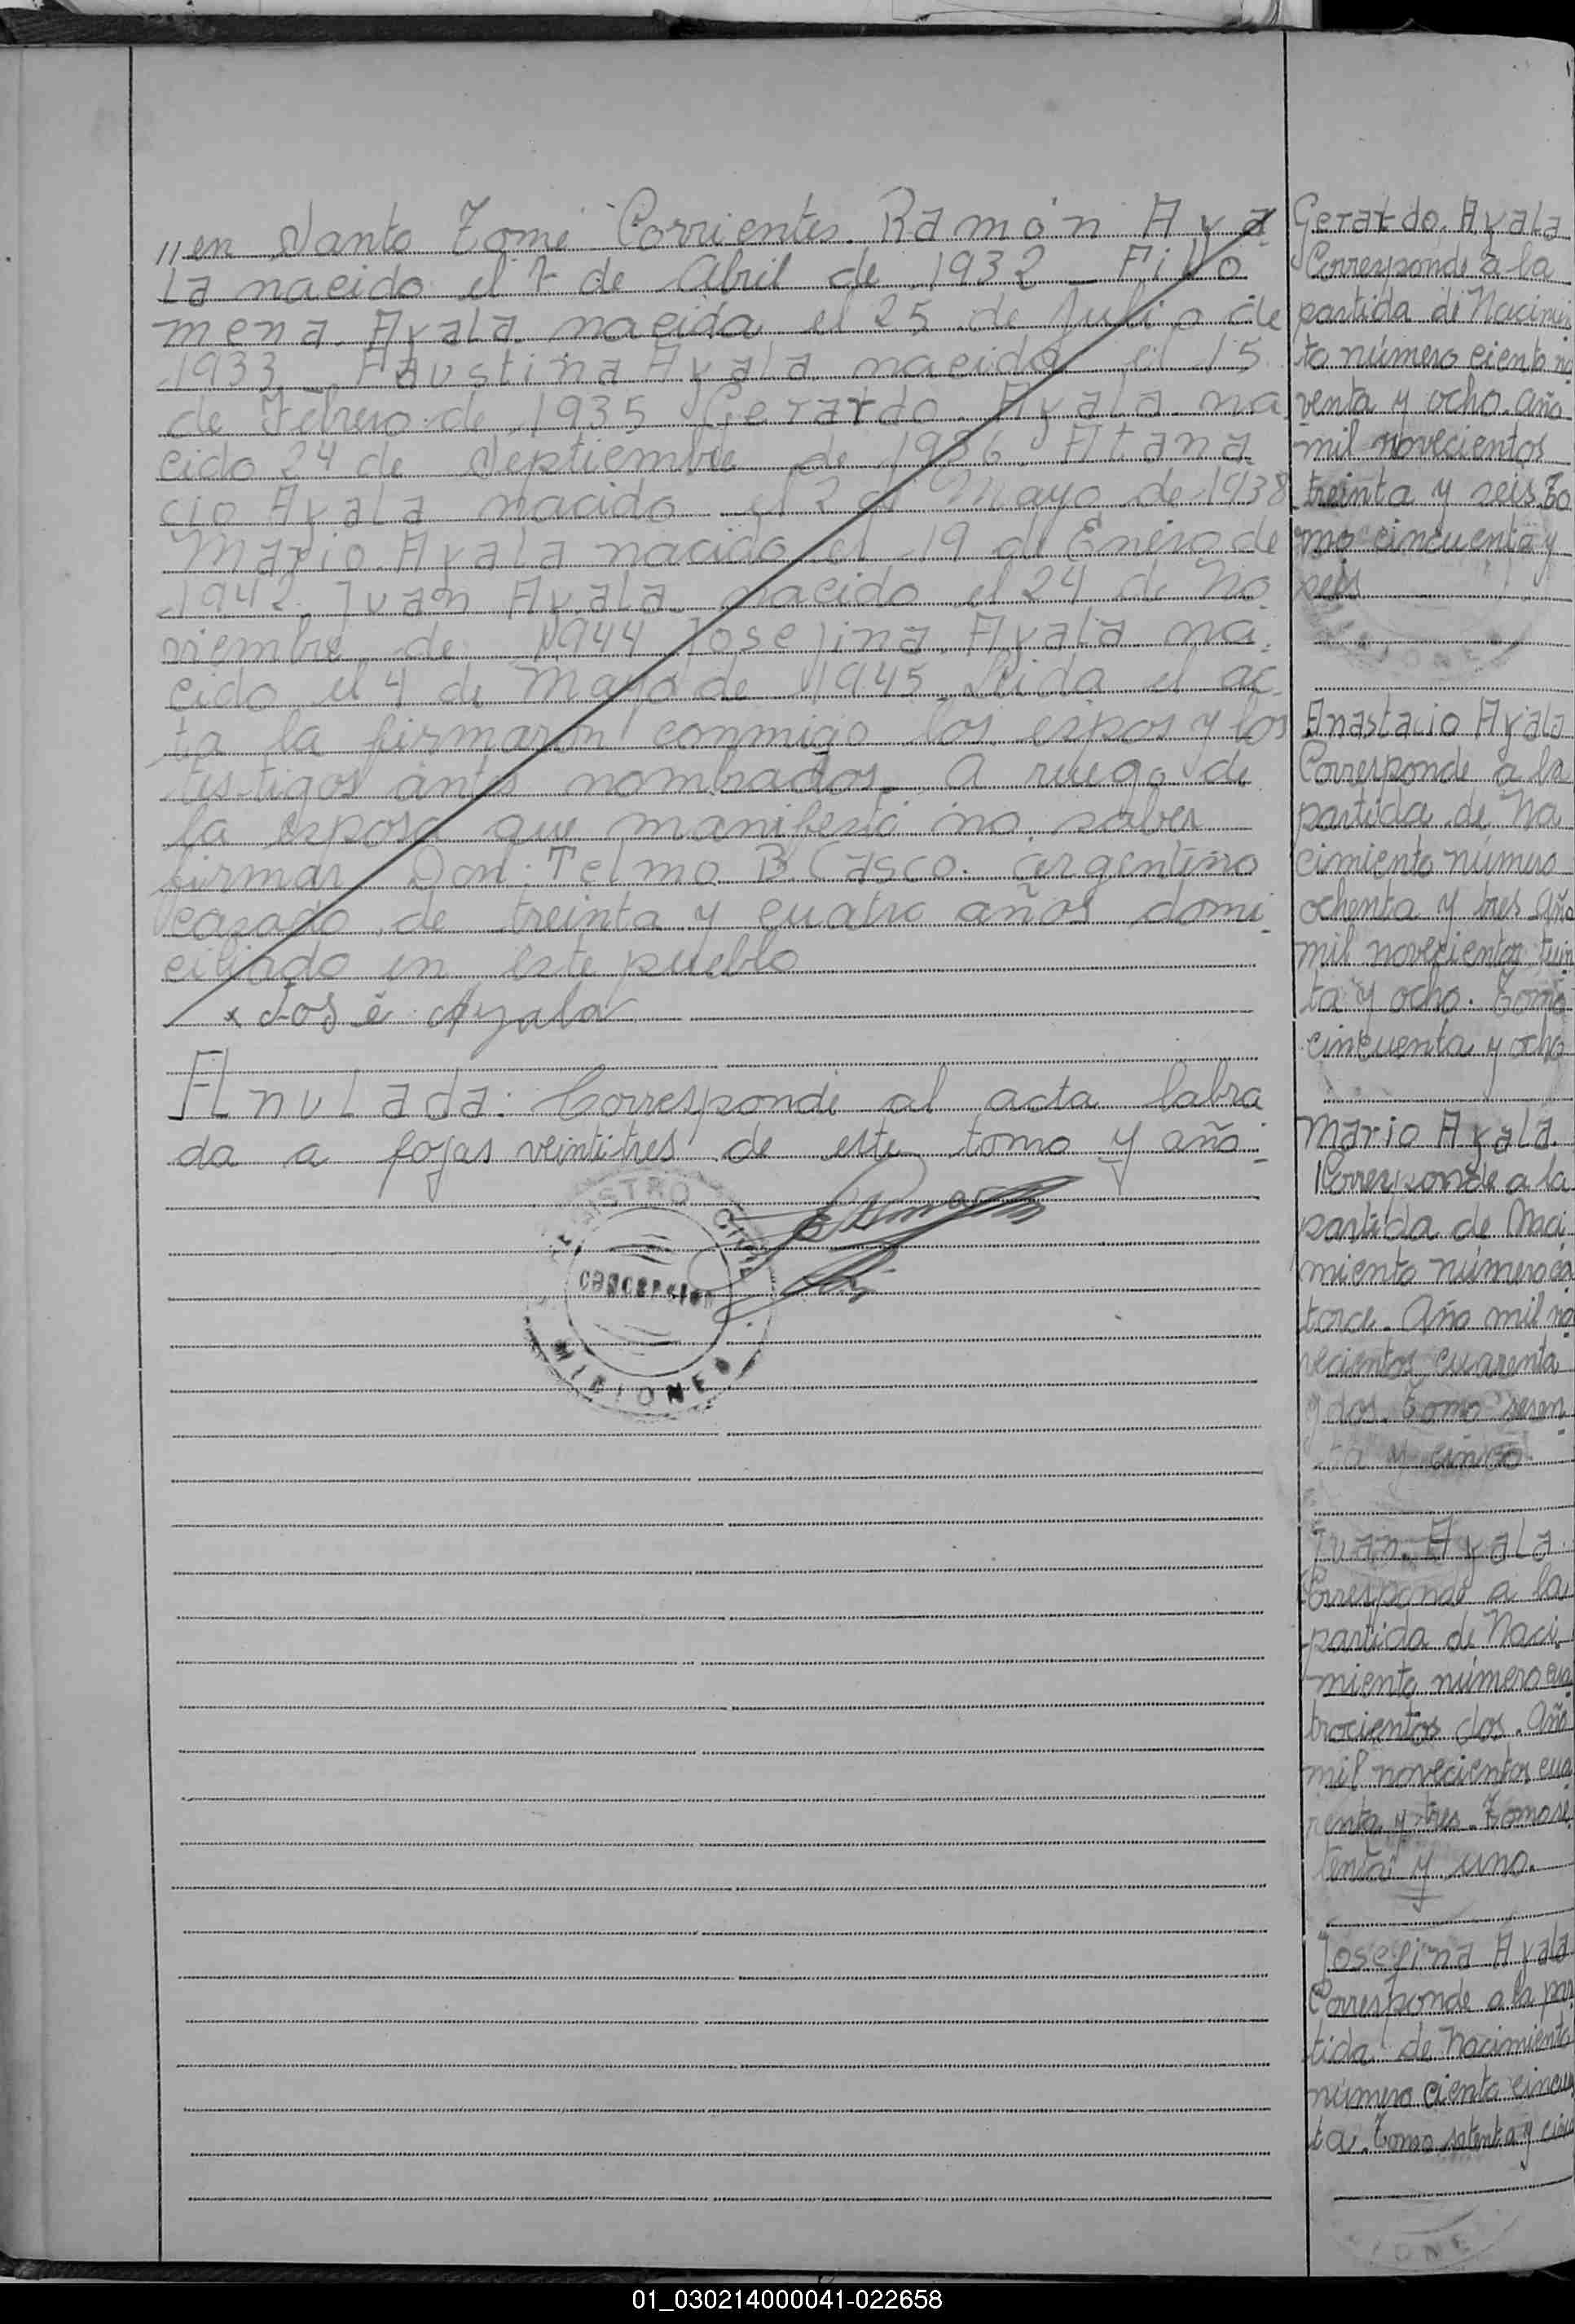 "en Santo Tomé Corrientes. Ramón Aya
la nacido el 7 de Abril de 1932 _ Filo
mena Ayala nacida el 25 de Julio de
1933 _ Faustina Ayala nacida el 15
de Febrero de 1935 Gerardo Ayala na
cido 24 de Septiembre de 1936. Atana
cio Ayala nacido el 2 de Mayo de 1938
Mario Ayala nacido el 19 de Enero de
1942. Juan Ayala nacido el 24 de No
viembre de 1944 Josefina Ayala na
cido el 4 de Mayo de 1945. Leida el ac
ta la firmaron conmigo los espos y los
testigos antes nombrados. A ruego de
la esposa que manifestó no saber
firmar Don: Telmo B. Casco. argentino
casado, de treinta y cuatro años domi
ciliado en este pueblo
x José Ayala
Anulada: Corresponde al acta labra
da a fojas veintitres de este tomo y año
REGISTRO CIVIL
Concepcion
MISIONES
Gerardo Ayala
Corresponde a la
partida de Nacimien
to número ciento no
venta y ocho. año
mil novecientos
treinta y seis. To
mo cincuenta y
seis
Anastacio Ayala
Corresponde a la
partida de Na
cimiento número
ochenta y tres Año
mil novecientos trein
ta y ocho. Tomo
cincuenta y ocho
Mario Ayala.
Corresponde a la
partida de Naci
miento número ca
torce. Año mil no
vecientos cuarenta
y dos. Tomo sesen
ta y cinco.
Juan Ayala.
Corresponde a la
partida de Naci
miento número cua
trocientos dos. Año
mil novecientos cua
renta y tres. Tomo se
tenta y uno.
Josefina Ayala
Corresponde a la par
tida de Nacimiento
número ciento cincuen
ta. Tomo setenta y cinco
01_030214000041-022658